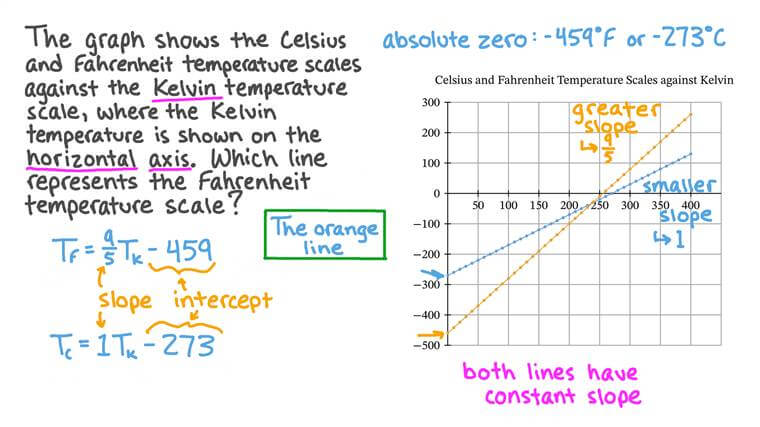 The graph shows the Celsius
and Fahrenheit temperature scales
against the Kelvin temperature
scale, where the Kelvin
temperature is shown on the
horizontal axis. Which line
represents the Fahrenheit
temperature scale?
The orange
line
T_F = 9/5 T_K - 459
slope intercept
T_C = 1T_K - 273
absolute zero: -459°F or -273°C
Celsius and Fahrenheit Temperature Scales against Kelvin
300
200
100
0
−100
−200
−300
−400
−500
50 100 150 200 250 300 350 400
greater
slope
↳ 9/5
smaller
slope
↳ 1
both lines have
constant slope